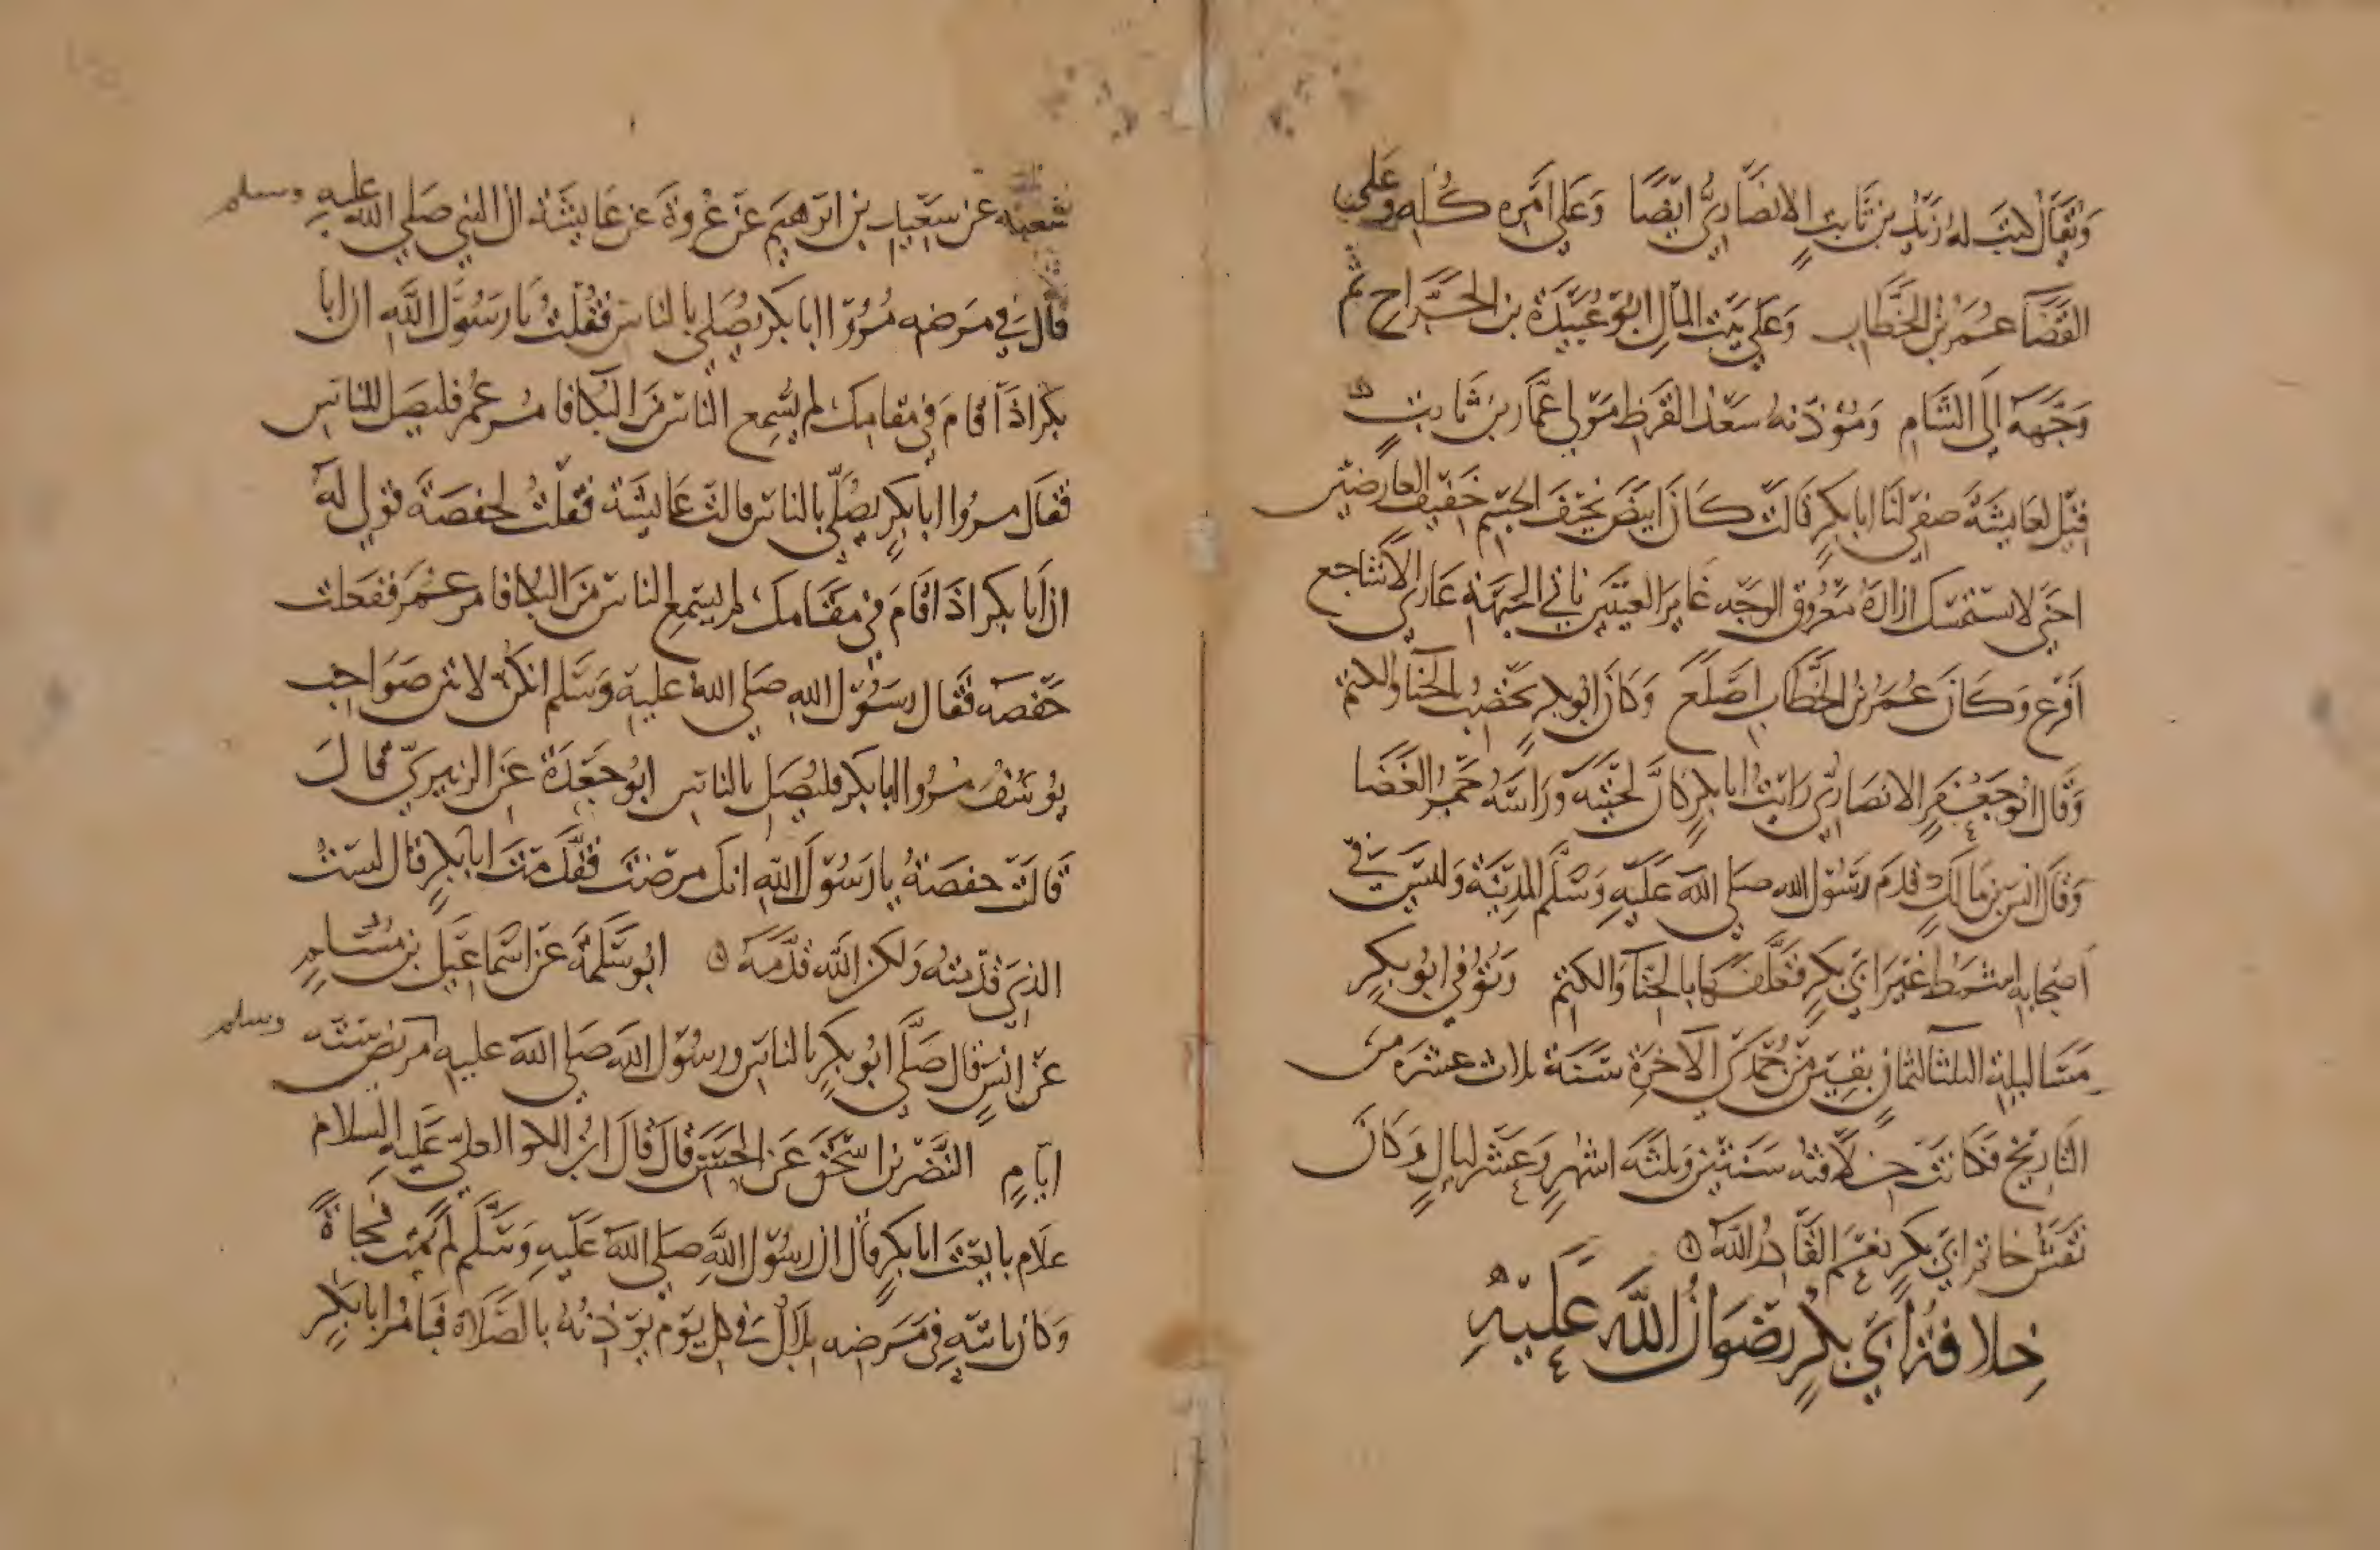 ويقال كتب له زيد بن ثابت الانصاري ايضا وعلى امره كله وعلى
القضا عمر بن الخطاب وعلى بيت المال ابو عبيدة بن الجراح ثم
وجهه الى الشام ومؤذنه سعد القرظ مولى عمار بن ثابت
قيل لعايشة صفي لنا ابا بكر قالت كان ابيض نحيف الجسم خفيف العارضين
احنى لا يستمسك ازاره معروق الوجه غاير العينين ناتي الجبهة عاري الاشاجع
اقرع وكان عمر بن الخطاب اصلع وكان ابو بكر يخضب بالحنا والكتم
وقال ابو جعفر الانصاري رايت ابا بكر كان لحيته وراسه جمر الغضا
وقال انس بن مالك قدم رسول الله صلى الله عليه وسلم المدينة وليس في
اصحابه اشمط غير ابي بكر فغلفها بالحنا والكتم وتوفي ابو بكر
مسا ليلة الثلثا لثمان بقين من جمدى الاخرة سنة ثلاث عشرة من
التاريخ فكانت خلافته سنتين وثلثة اشهر وعشر ليال وكان
نقش خاتم ابي بكر نعم القادر الله
خلافة ابي بكر رضوان الله عليه
شعبه عن سعيد بن ابرهيم عن عروة عن عايشة ان النبي صلى الله عليه وسلم
قال في مرضه مروا ابا بكر يصلي بالناس فقلت يا رسول الله ان ابا
بكر اذا قام في مقامك لم يسمع الناس من البكا فامر عمر فليصل للناس
فقال مروا ابا بكر يصلي بالناس قالت عايشة فقلت لحفصة قولي له
ان ابا بكر اذا قام في مقامك لم يسمع الناس من البكا فامر عمر ففعلت
حفصه فقال رسول الله صلى الله عليه وسلم انكن لانتن صواحب
يوسف مروا ابا بكر فليصل بالناس ابو جعدة عن الزبيري قال
قالت حفصة يا رسول الله انك مرضت فقدمت ابا بكر قال لست
الذي قدمته ولكن الله قدمه ابو سلمة عن اسماعيل بن مسلم
عن انس قال صلى ابو بكر بالناس ورسول الله صلى الله عليه وسلم مريض ستة
ايام النضر بن اسحق عن الحسن قال قال ابن الكوا لعلي عليه السلام
علام بايعت ابا بكر قال ان رسول الله صلى الله عليه وسلم لم يمت فجاة
وكان ياتيه في مرضه بلال في كل يوم يوذنه بالصلاة فيامر ابا بكر